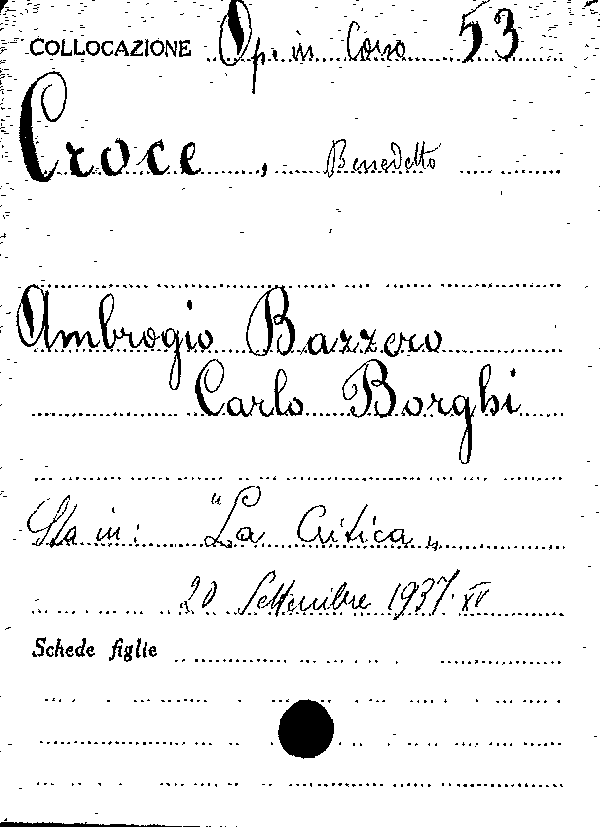 COLLOCAZIONE Op. in Corso 53
Croce, Benedetto
Ambrogio Bazzero
Carlo Borghi
Sta in: "La Critica„
20 Settembre 1937. XV
Schede figlie